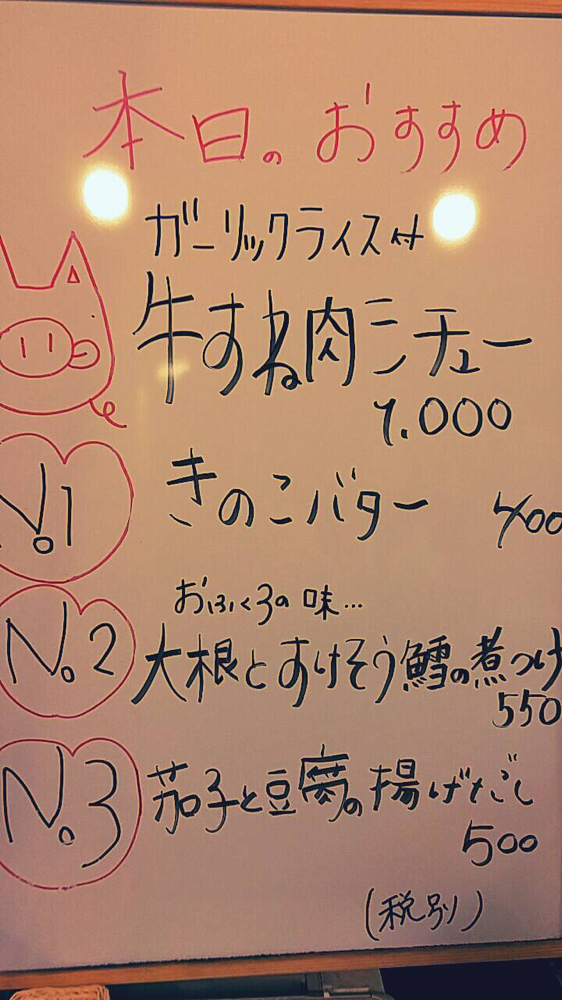 本日のおすすめ
ガーリックライス付
牛すね肉シチュー
1.000
No.1 きのこバター 400
おふくろの味…
No.2 大根とすけそう鱈の煮つけ
550
No.3 茄子と豆腐の揚げだし
500
(税別)